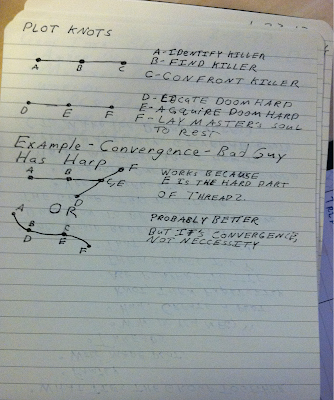 PLOT KNOTS
A-IDENTIFY KILLER
B-FIND KILLER
C-CONFRONT KILLER
A B C
D-LOCATE DOOM HARP
E-AQUIRE DOOM HARP
F-LAY MASTER'S SOUL
TO REST
D E F
Example-Convergence-Bad Guy
Has Harp
A B C,E F
D
WORKS BECAUSE
E IS THE HARD PART
OF THREAD 2
OR
A
B C
D E F
PROBABLY BETTER
BUT IT'S CONVERGENCE,
NOT NECCESSITY